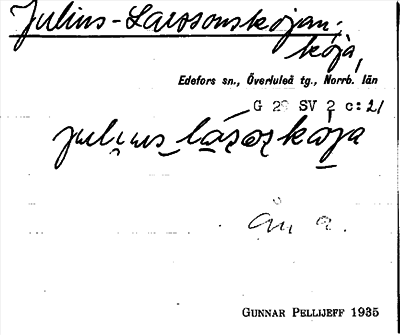 Julius-Larssonskojan:
koja,
Edefors sn., Överluleå tg., Norrb. län
G 29 SV 2 c:21
julius lásoskója
GUNNAR PELLIJEFF 1935